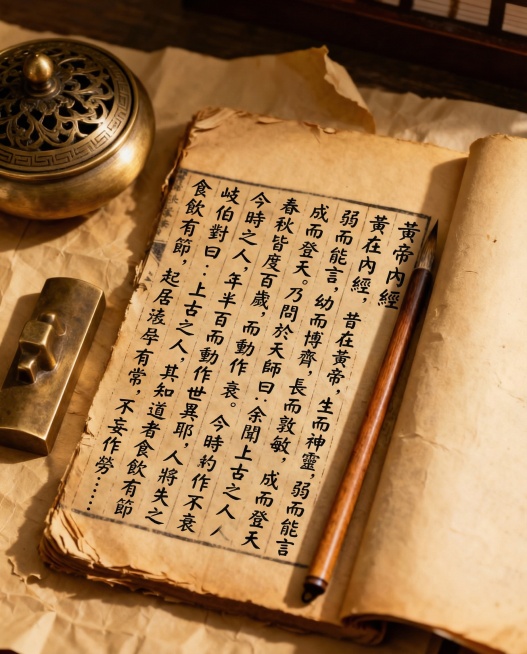 黃帝內經
黃在內經，昔在黃帝，生而神靈，弱而能言
弱而能言，幼而博齊，長而敦敏，成而登天
成而登天。乃問於天師曰：余聞上古之人
春秋皆度百歲，而動作衰。今時約作不衰
今時之人，年半百而動作世異耶，人將失之
岐伯對曰：上古之人，其知道者食飲有節
食飲有節，起居 有常，不妄作勞……